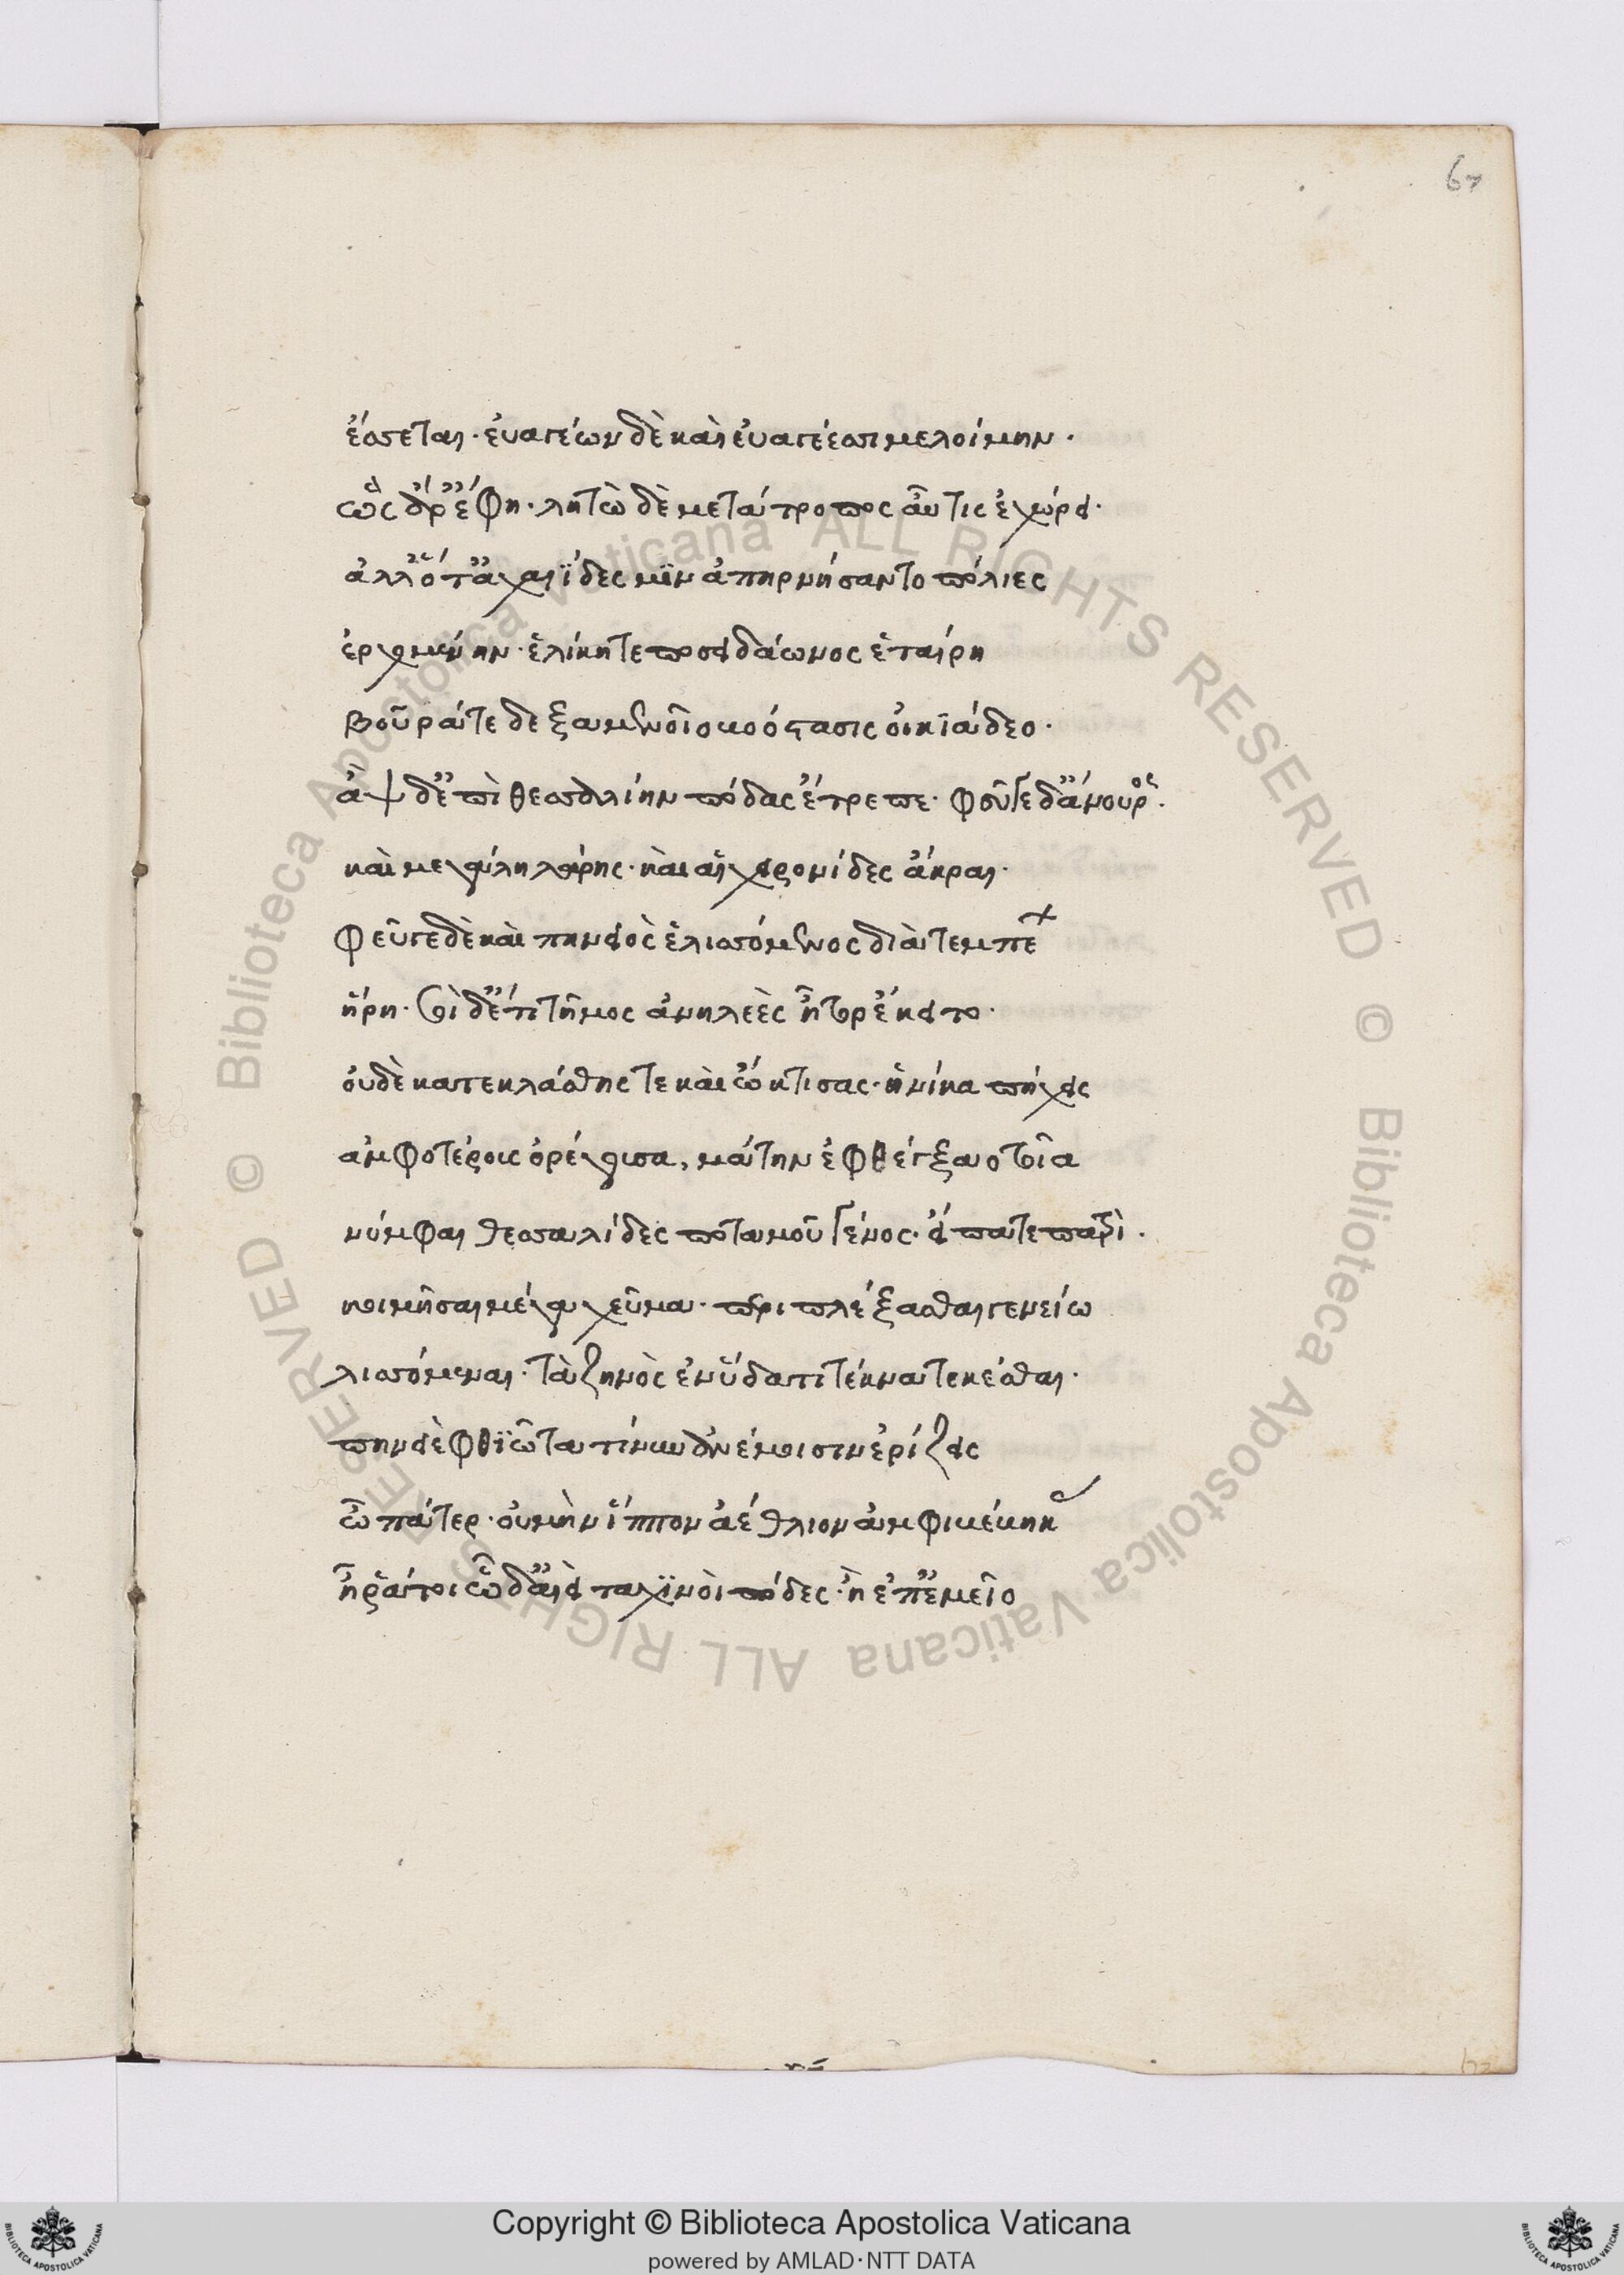 67
ἔσσεται· εὐαγέων δὲ καὶ εὐαγέεσσι μελοίμην·
ὣς ἄρ' ἔφη· λητὼ δὲ μετάτροπος αὖτις ἐχώρει·
ἀλλ' ὅτ' ἀχαιΐδες μὶν ἀπηρνήσαντο πόλιες
ἐρχομένην· ἑλίκη τε ποσειδάωνος ἑταίρη
βοῦρά τε δεξαμενοῖο βοόστασις οἰκιάδεο·
ἂψ δ' ἐπὶ θεσσαλίην πόδας ἔτρεπε· φεῦγε δ' ἄναυρος·
καὶ μεγάλη λάρισ· καὶ αἱ χειρονίδες ἄκραι·
φεῦγε δὲ καὶ πηνειὸς ἑλισσόμενος διὰ τεμπέ
ἥρη· σοὶ δ' ἔτι τῆμος ἀνηλεὲς ἦτορ ἔκειτο·
οὐδὲ κατεκλάσθης τε καὶ ᾤκτισας· ἡνίκα πήχεις
ἀμφοτέροις ὀρέγουσα, μάτην ἐφθέγξαο τοῖα
νύμφαι θεσσαλίδες ποταμοῦ γένος· εἴπατε πατρὶ·
κοιμῆσαι μέγα χεῦμα· περιπλέξασθαι γενείω
λισσόμεναι· τὰ ζηνὸς ἐν ὕδατι τέκνα τεκέσθαι·
πηνειὲ φθιῶτα τί νῦν ἀνέμοισιν ἐρίζεις
ὦ πάτερ· οὐ μὴν ἵππον ἀέθλιον ἀμφιβέβηκας
ἦ ῥά τοι ὧδ' αἰεὶ ταχινοὶ πόδες· ἢ ἐπ' ἐμεῖο
Copyright © Biblioteca Apostolica Vaticana
powered by AMLAD·NTT DATA
© Biblioteca Apostolica Vaticana ALL RIGHTS RESERVED © Biblioteca Apostolica Vaticana ALL RIGHTS RESERVED